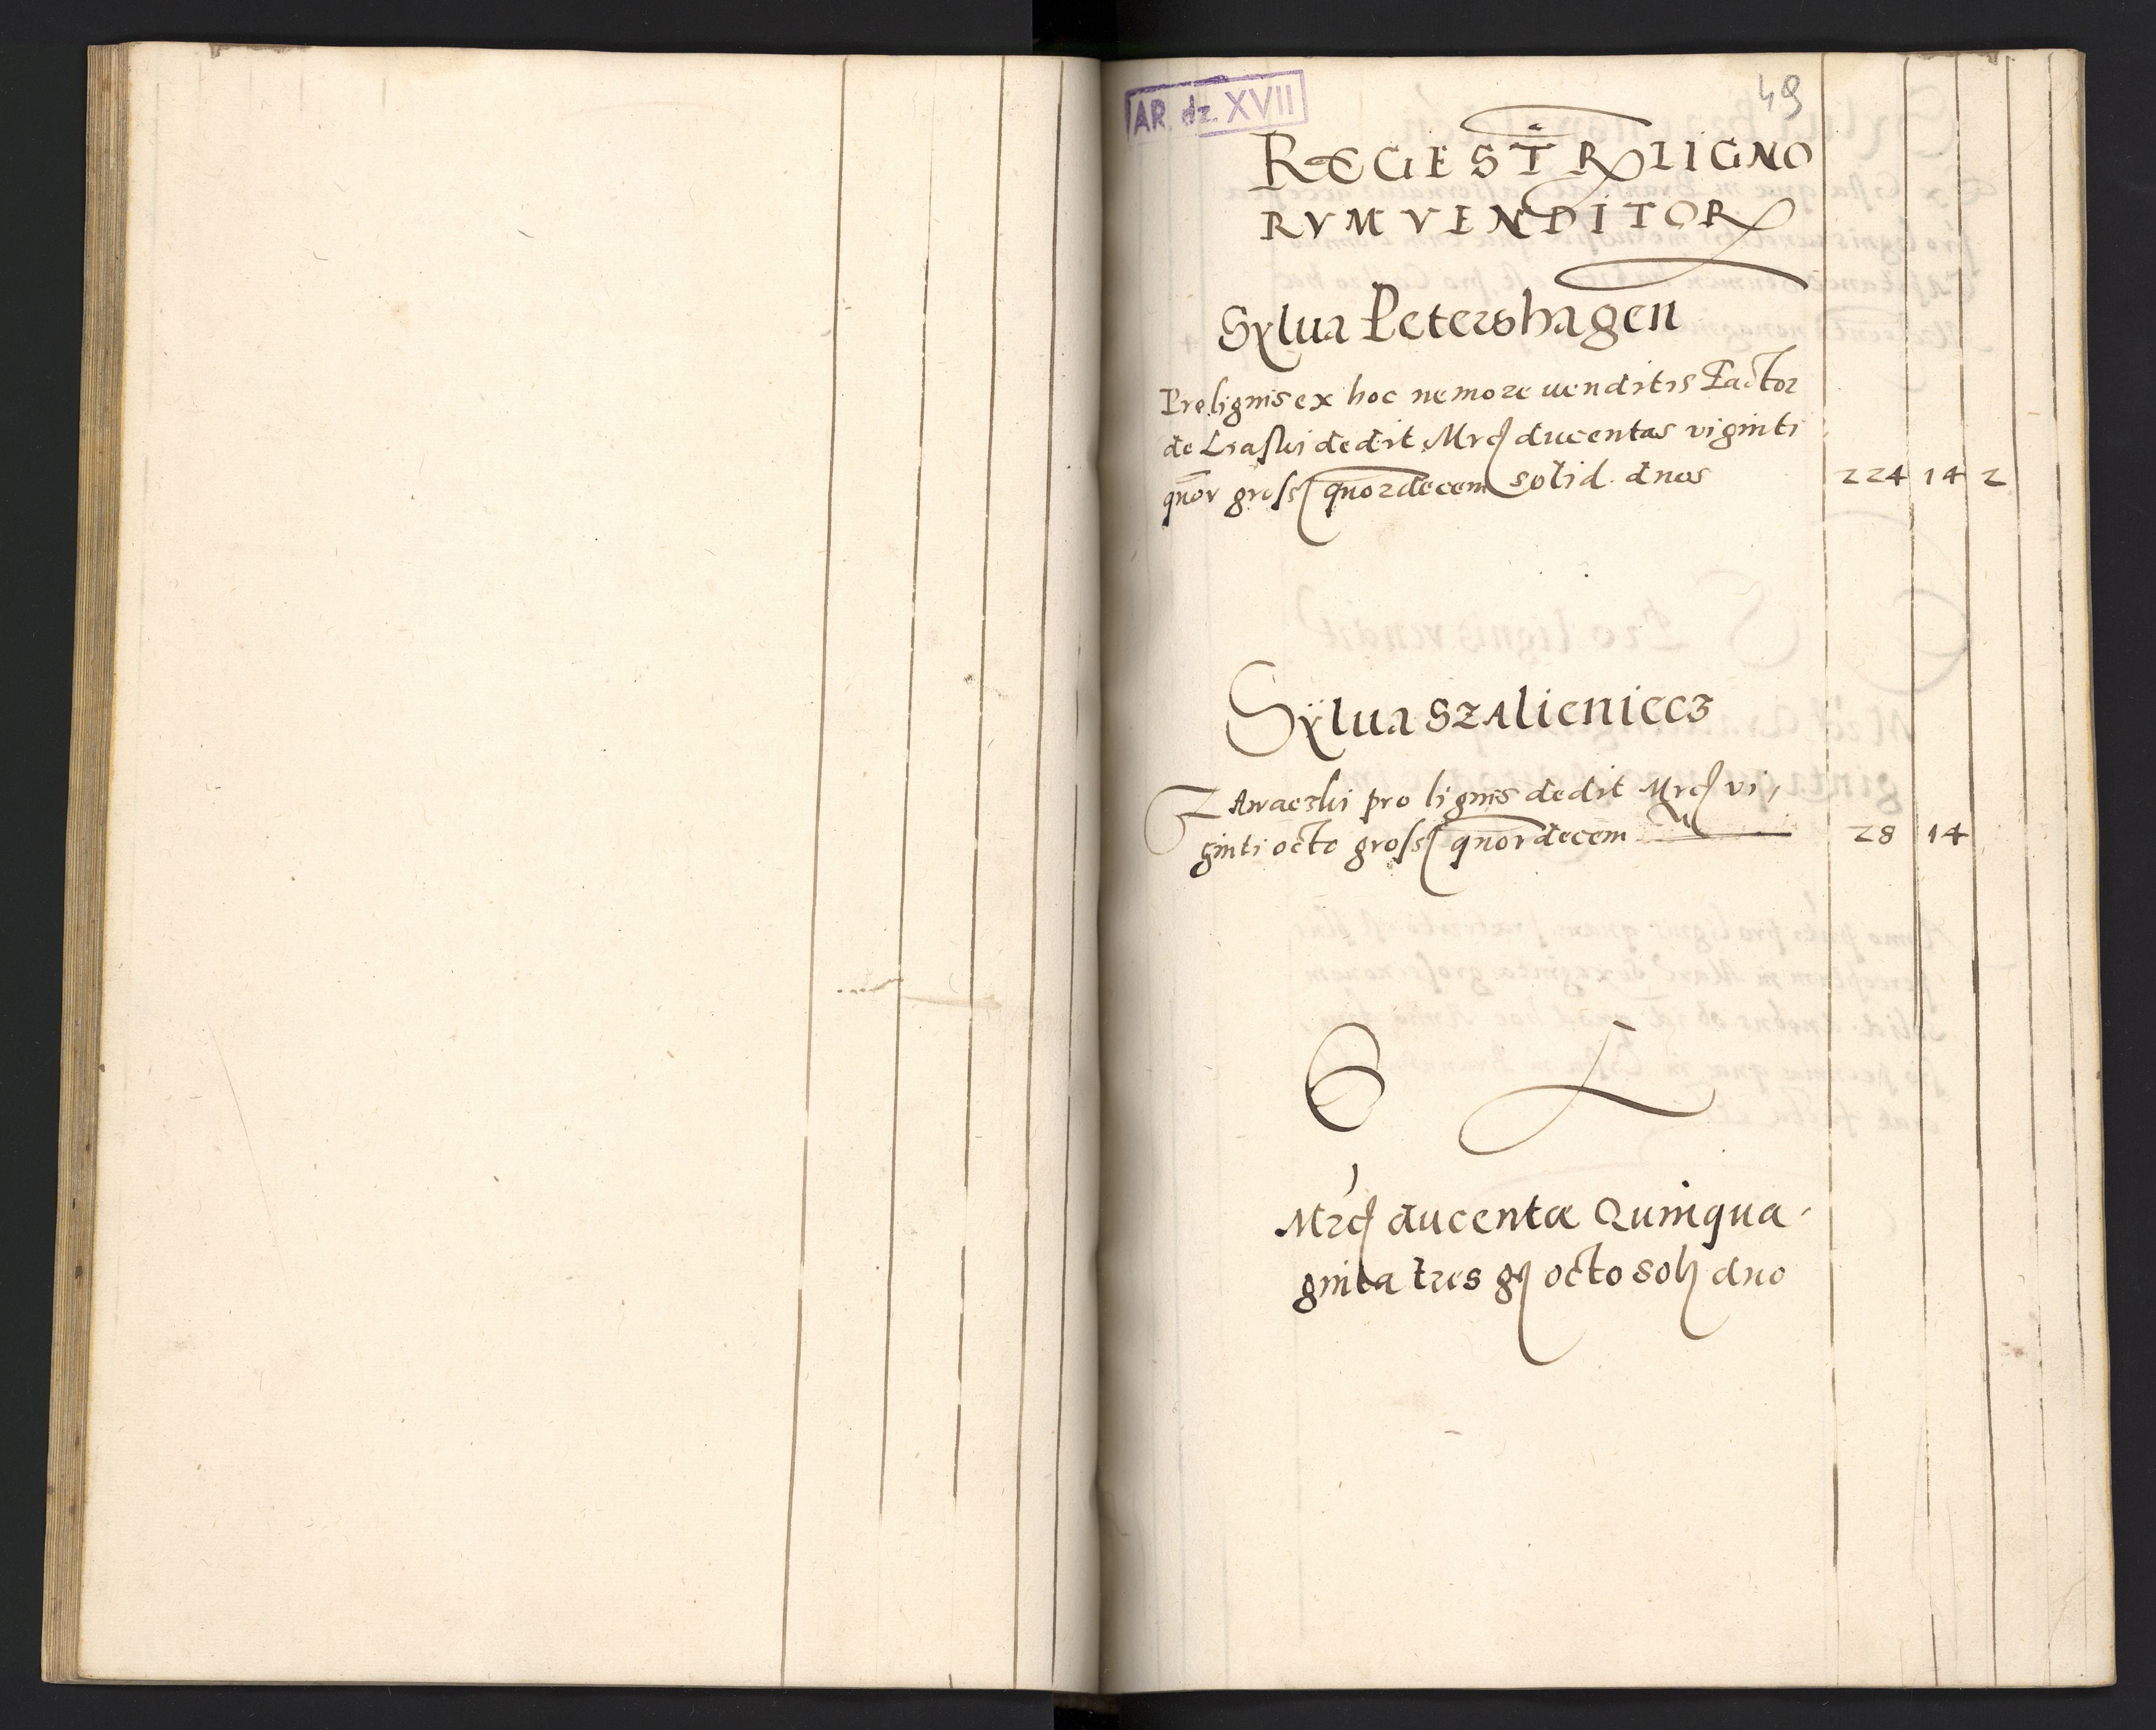 AR. dz. XVII
49
REGESTR LIGNO
RVM VENDITOR
Sylua Petershagen
Pro lignis ex hoc nemore uenditis Factor
de dedit Mrc ducentas viginti
quor gross quordecem solid. duos 224 14 2
Sÿlua Szalieniecz
pro lignis dedit Mrc vi,
ginti octo gross quordecem 28 14
Mrc ducentæ Quinqua-
ginta tres g octo sol duo